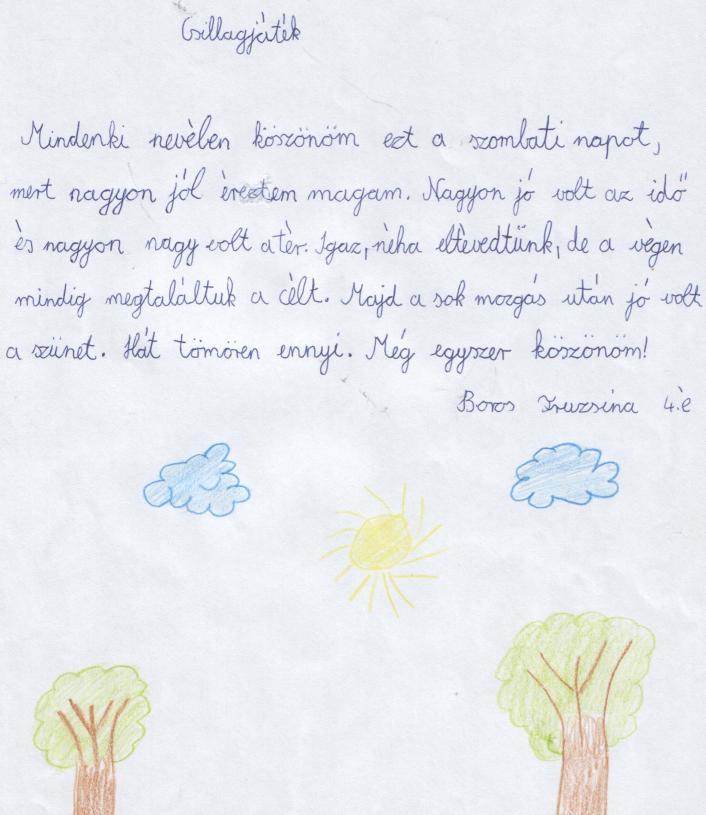 Csillagjáték
Mindenki nevében köszönöm ezt a szombati napot,
mert nagyon jól éreztem magam. Nagyon jó volt az idő
és nagyon nagy volt a tér. Igaz, néha eltévedtünk, de a végén
mindig megtaláltuk a célt. Majd a sok mozgás után jó volt
a szünet. Hát tömören ennyi. Még egyszer köszönöm!
Boros Fruzsina 4.é